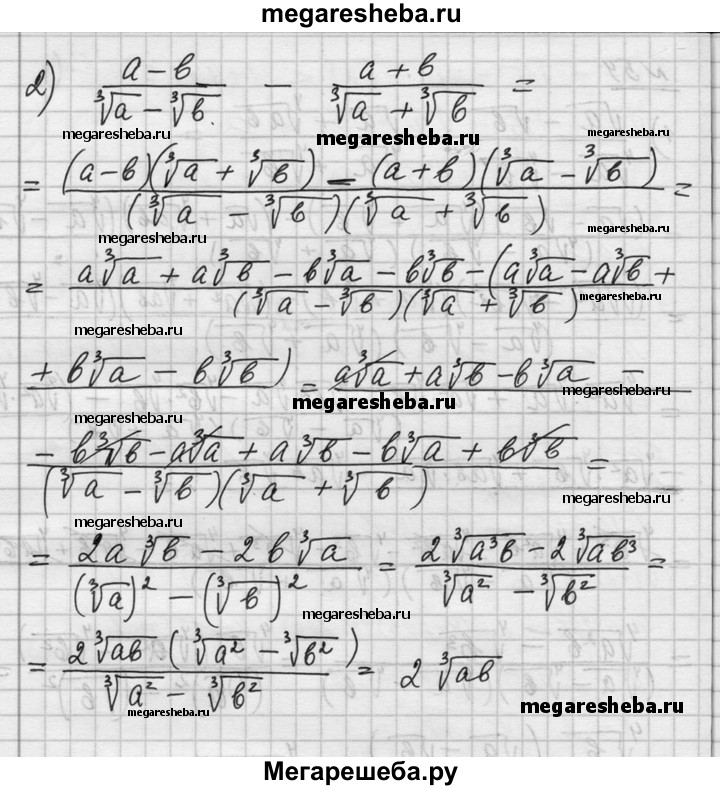 megaresheba.ru
2) (a-b)/(∛a - ∛b) - (a+b)/(∛a + ∛b) =
megaresheba.ru megaresheba.ru
= ((a-b)(∛a + ∛b) - (a+b)(∛a - ∛b))/((∛a - ∛b)(∛a + ∛b)) =
megaresheba.ru megaresheba.ru
= (a∛a + a∛b - b∛a - b∛b - (a∛a - a∛b +)/((∛a - ∛b)(∛a + ∛b))
megaresheba.ru megaresheba.ru
+ b∛a - b∛b) = a∛a + a∛b - b∛a -
megaresheba.ru megaresheba.ru megaresheba.ru
(- b∛b - a∛a + a∛b - b∛a + b∛b)/((∛a - ∛b)(∛a + ∛b)) =
megaresheba.ru megaresheba.ru
= (2a∛b - 2b∛a)/((∛a)² - (∛b)²) = (2∛a³b - 2∛ab³)/(∛a² - ∛b²) =
megaresheba.ru
= (2∛ab (∛a² - ∛b²))/(∛a² - ∛b²) = 2∛ab
megaresheba.ru megaresheba.ru
Мегарешеба.ру